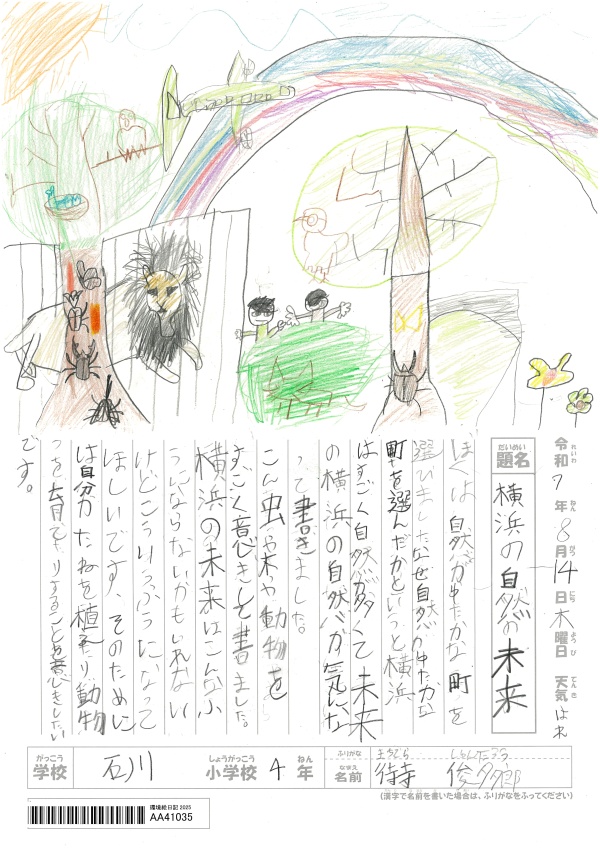 令和7年8月14日木曜日 天気 はれ
れいわ ねん がつ にち ようび てんき
だいめい
題名 横浜の自然の未来
ぼくは自然がゆたかな町を
選びましたなぜ自然がゆたかな
町を選んだかというと横浜
はすごく自然が多くて未来
の横浜の自然が気にな
って書きました。
こん虫や木や動物を
すごく意しきして書ました。
横浜の未来はこんなふ
うにならないかもしれない
けどこういうふうになって
ほしいです、そのために
は自分でたねを植えたり動物
を育てたりすることを意しきしたい
です。
がっこう
学校 石川
しょうがっこう
小学校 4 ねん
年
ふりがな まちでら しゅんたろう
なまえ
名前 待寺 俊多郎
(漢字で名前を書いた場合は、ふりがなをふってください)
環境絵日記 2025
AA41035